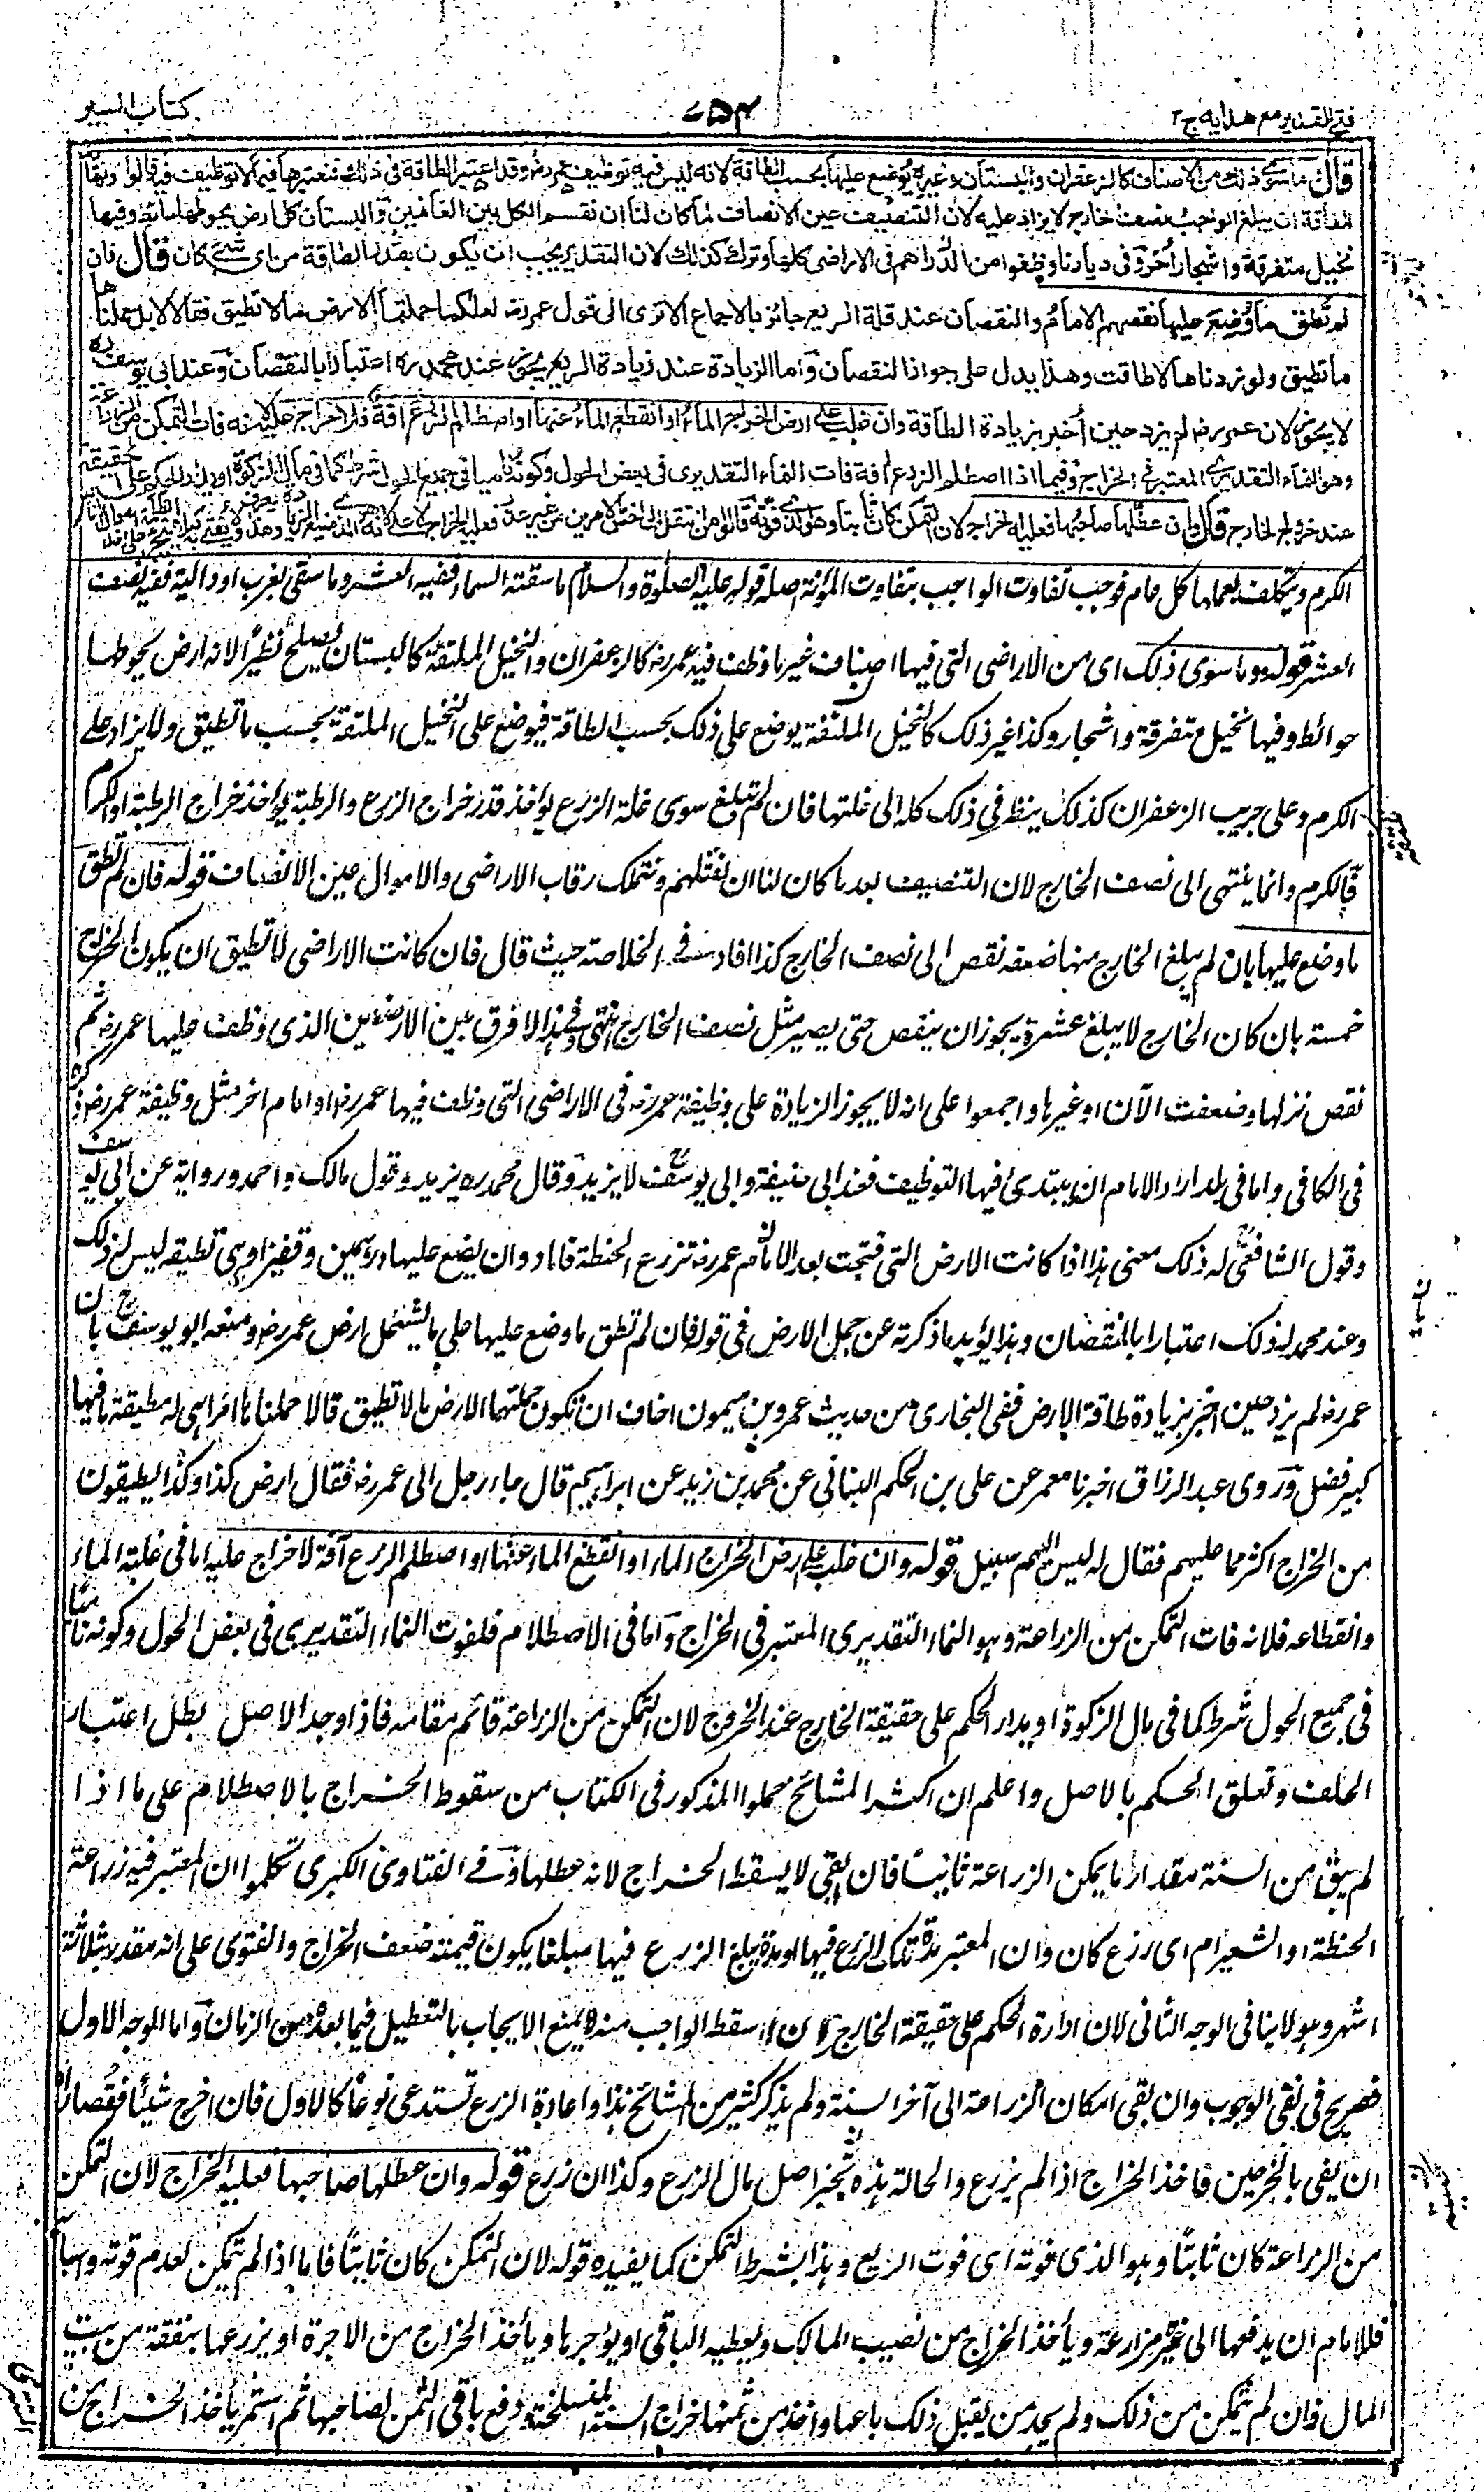 فتح القدير مع هدايه ج ٢
٧٥٤
كتاب السير
قال وما سوى ذلك من الاصناف كالزعفران والبستان وغيره يوضع عليها بحسب الطاقة لانه ليس فيه توظيف عمر رضـ وقد اعتبر الطاقة فى ذلك فنعتبرها فيما لا توظيف فيه قالوا ونهاية
الطاقة ان يبلغ الواجب نصف الخارج لا يزاد عليه لان التنصيف عين الانصاف لما كان لنا ان نقسم الكل بين الغانمين والبستان كل ارض يحوطها حائط وفيها
نخيل متفرقة واشجار اخر وفى ديارنا وظفوا من الدراهم فى الاراضى كلها وترك كذلك لان التقدير يجب ان يكون بقدر الطاقة من اى شئ كان قال فان
لم تطق ما وضع عليها نقصهم الامام والنقصان عند قلة الريع جائز بالاجماع الا ترى الى قول عمر رضـ لعلكما حملتما الارض ما لا تطيق فقالا لا بل حملناها
ما تطيق ولو زدناها لاطاقت وهذا يدل على جواز النقصان واما الزيادة عند زيادة الريع يجوز عند محمد ره اعتبارا بالنقصان وعند ابى يوسف ره
لا يجوز لان عمر رضـ لم يزد حين أخبر بزيادة الطاقة وان غلب على ارض الخراج الماء او انقطع الماء عنها او اصطلم الزرع آفة فلا خراج عليه لانه فات التمكن من الزراعة
وهو النماء التقديرى المعتبر فى الخراج وفيما اذا اصطلم الزرع آفة فات النماء التقديرى فى بعض الحول وكونه ناميا فى جميع الحول شرط كما فى مال الزكوة او يدار الحكم على حقيقته
عند خروج الخارج قال وان عطلها صاحبها فعليه الخراج لان التمكن كان ثابتا وهو الذى فوته قالوا من انتقل الى اخس الامرين من غير عذر فعليه خراج الاعلى
الكرم ويتكلف لعملها كل عام فوجب تفاوت الواجب بتفاوت المؤنة اصله قوله عليه الصلوة والسلام ما سقته السماء ففيه العشر وما سقى بغرب او دالية ففيه نصف
العشر قوله وما سوى ذلك اى من الاراضى التى فيها اصناف غير ما وظف فيه عمر رضـ كالزعفران والنخيل الملتفة كالبستان يصلح نظيرا لانه ارض يحوطها
حوائط وفيها نخيل متفرقة واشجار وكذا غير ذلك كالنخيل الملتفة يوضع على ذلك بحسب الطاقة فيوضع على النخيل الملتفة بحسب ما تطيق ولا يزاد على
الكرم وعلى جريب الزعفران كذلك ينظر فى ذلك كله الى غلتها فان لم تبلغ سوى غلة الزرع يؤاخذ قدر خراج الزرع والرطبة يؤاخذ خراج الرطبة او الكرم
فالكرم وانما ينتهى الى نصف الخارج لان التنصيف بعد ما كان لنا ان نقتلهم ونتملك رقاب الاراضى والاموال عين الانصاف قوله فان لم تطق
ما وضع عليها بان لم يبلغ الخارج منها ضعفه نقص الى نصف الخارج كذا افاده فى الخلاصة حيث قال فان كانت الاراضى لا تطيق ان يكون الخراج
خمسة بان كان الخارج لا يبلغ عشرة يجوز ان ينقص حتى يصير مثل نصف الخارج انتهى وفى هذا لا فرق بين الارضين الذى وظف عليها عمر رضـ ثم
نقص نزلها وضعفت الآن او غيرها واجمعوا على انه لا يجوز الزيادة على وظيفة عمر رضـ فى الاراضى التى وظف فيها عمر رضـ او امام اخر مثل وظيفة عمر رضـ ذكره
فى الكافى واما فى بلد اراد الامام ان يبتدئ فيها التوظيف فعند ابى حنيفة وابى يوسف لا يزيد وقال محمد ره يزيد وقول مالك واحمد ورواية عن ابى يوسف
وقول الشافعى له ذلك معنى هذا اذا كانت الارض التى فتحت بعد الامام عمر رضـ تزرع الحنطة فاراد وان يضع عليها درهمين وقفيزا وهى تطيقه ليس له ذلك
وعند محمد له ذلك اعتبارا بالنقصان وهذا يؤيد ما ذكرته عن حمل الارض فى قوله فان لم تطق ما وضع عليها على ما يشتمل ارض عمر رضـ ومنعه ابو يوسف بان
عمر رضـ لم يزد حين اخبر بزيادة طاقة الارض ففى البخارى من حديث عمرو بن ميمون اخاف ان تكون حملتما الارض ما لا تطيق قالا حملناها امرا هى له مطيقة ما فيها
كبير فضل وروى عبد الرزاق اخبرنا معمر عن على بن الحكم البنانى عن محمد بن زيد عن ابراهيم قال جاء رجل الى عمر رضـ فقال ارض كذا وكذا يطيقون
من الخراج اكثر مما عليهم فقال له ليس اليهم سبيل قوله وان غلب على ارض الخراج الماء او انقطع الماء عنها او اصطلم الزرع آفة لا خراج عليه اما فى غلبة الماء
وانقطاعه فلانه فات التمكن من الزراعة وهو النماء التقديرى المعتبر فى الخراج واما فى الاصطلام فلفوت النماء التقديرى فى بعض الحول وكونه ناميا
فى جميع الحول شرط كما فى مال الزكوة او يدار الحكم على حقيقة الخارج عند الخروج لان التمكن من الزراعة قائم مقامه فاذا وجد الاصل بطل اعتبار
الخلف وتعلق الحكم بالاصل واعلم ان اكثر المشائخ حملوا المذكور فى الكتاب من سقوط الخراج بالاصطلام على ما اذا
لم يبق من السنة مقدار ما يمكن الزراعة ثانيا فان بقى لا يسقط الخراج لانه عطلها وفى الفتاوى الكبرى تكلموا ان المعتبر فيه زراعة
الحنطة او الشعير ام اى زرع كان وان المعتبر مدة تكمل الزرع فيها او مدة يبلغ الزرع فيها مبلغا يكون قيمته ضعف الخراج والفتوى على انه مقدر بثلاثة
اشهر وهو لا ينافى الوجه الثانى لان ادارة الحكم على حقيقة الخارج لان اسقط الواجب منه لا يمنع الايجاب بالتعطيل فيما بعده من الزمان واما الوجه الاول
فصريح فى نفى الوجوب وان بقى امكان الزراعة الى آخر السنة ولم يذكر كثير من المشائخ هذا واعادة الزرع تستدعى نوعا كالاول فان اخرج شيئا فقصاراه
ان يفى بالخرجين فاخذ الخراج اذا لم يزرع والحالة هذه يخبز اصل مال الزرع وكذا ان زرع قوله وان عطلها صاحبها فعليه الخراج لان التمكن
من الزراعة كان ثابتا وهو الذى فوته اى فوت الريع وهذا بشرط التمكن كما يفيده قوله لان التمكن كان ثابتا فاما اذا لم يتمكن لعدم قوته واسبابه
فللامام ان يدفعها الى غيره مزارعة ويأخذ الخراج من نصيب المالك ويعطيه الباقى او يؤجرها ويأخذ الخراج من الاجرة او يزرعها بنفقة من بيت
المال فان لم يتمكن من ذلك ولم يجد من يقبل ذلك باعها واخذ من ثمنها خراج السنة المنسلخة ودفع باقى الثمن لصاحبها ثم استمر يأخذ الخراج من